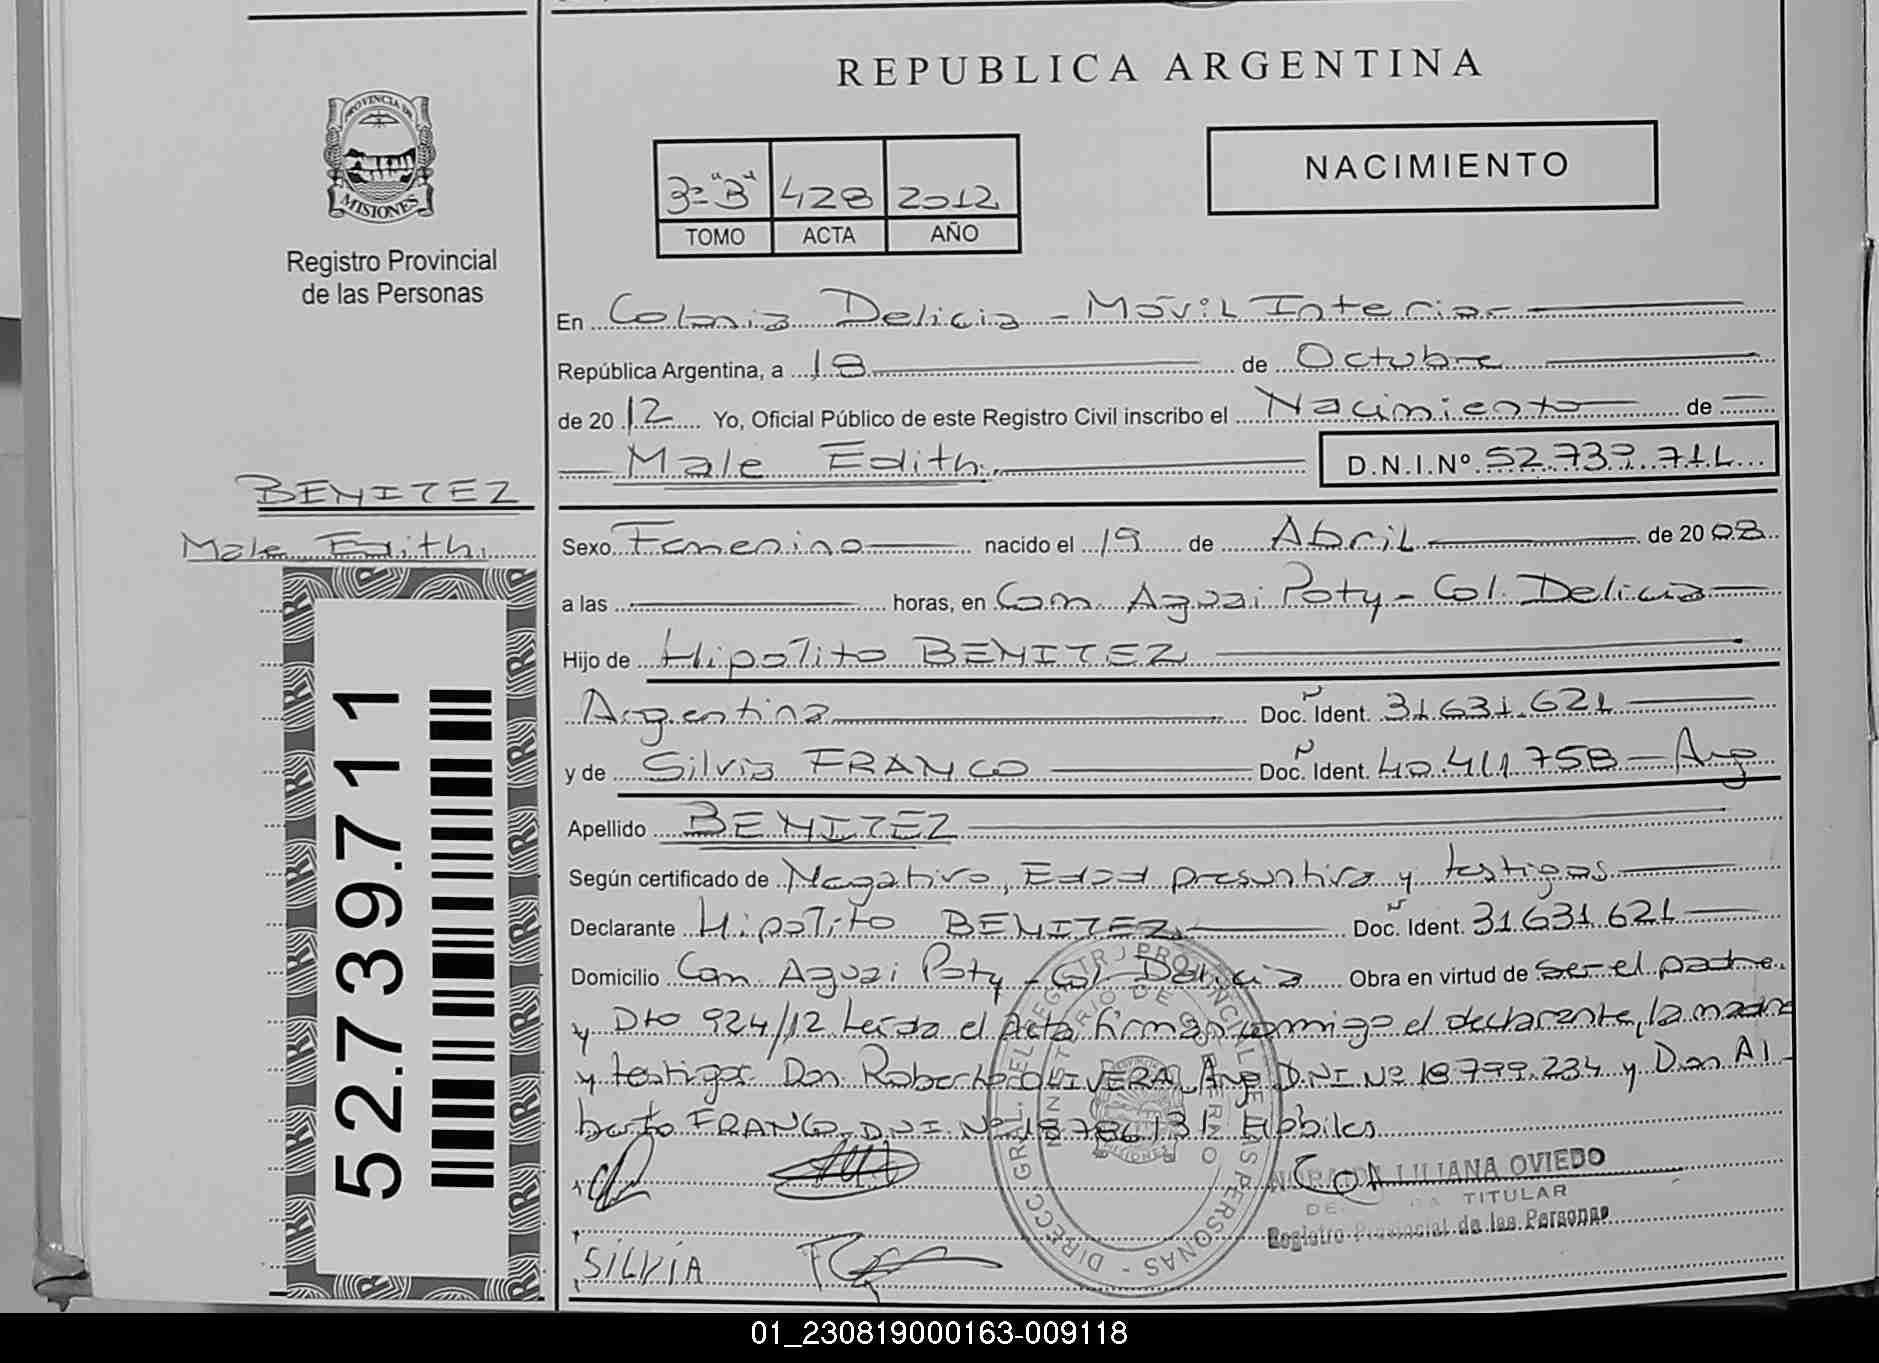 REPUBLICA ARGENTINA
PROVINCIA DE
MISIONES
Registro Provincial
de las Personas
3º "B" 428 2012
TOMO ACTA AÑO
NACIMIENTO
En Colonia Delicia - Móvil Interior
República Argentina, a 18 de Octubre
de 2012 Yo, Oficial Público de este Registro Civil inscribo el Nacimiento de
Male Edith D.N.I.Nº 52.739.711
BENITEZ
Male Edith
52.739.711
Sexo Femenino nacido el 19 de Abril de 2008
a las horas, en Com Aguai Poty - Col. Delicia
Hijo de Hipolito BENITEZ
Argentina Doc. Ident. 31.631.621
y de Silvia FRANCO Doc. Ident. 40.411.758 - Arg
Apellido BENITEZ
Según certificado de Negativo, Edad presuntiva y testigos
Declarante Hipolito BENITEZ Doc. Ident. 31.631.621
Domicilio Com Aguai Poty - Col. Delicia Obra en virtud de ser el padre
y Dto 924/12 Leída el Acta, firman conmigo el declarante, la madre
y testigos Don Roberto OLIVERA, Arg D.N.I Nº 18.799.234 y Don Al-
berto FRANCO, D.N.I. Nº 18.786.131 Hábiles
LILIANA OVIEDO
TITULAR
Registro Provincial de las Personas
SILVIA
DIRECC GRAL. DEL REGISTRO PROVINCIAL DE LAS PERSONAS
MINISTERIO DE GOBIERNO
MISIONES
01_230819000163-009118